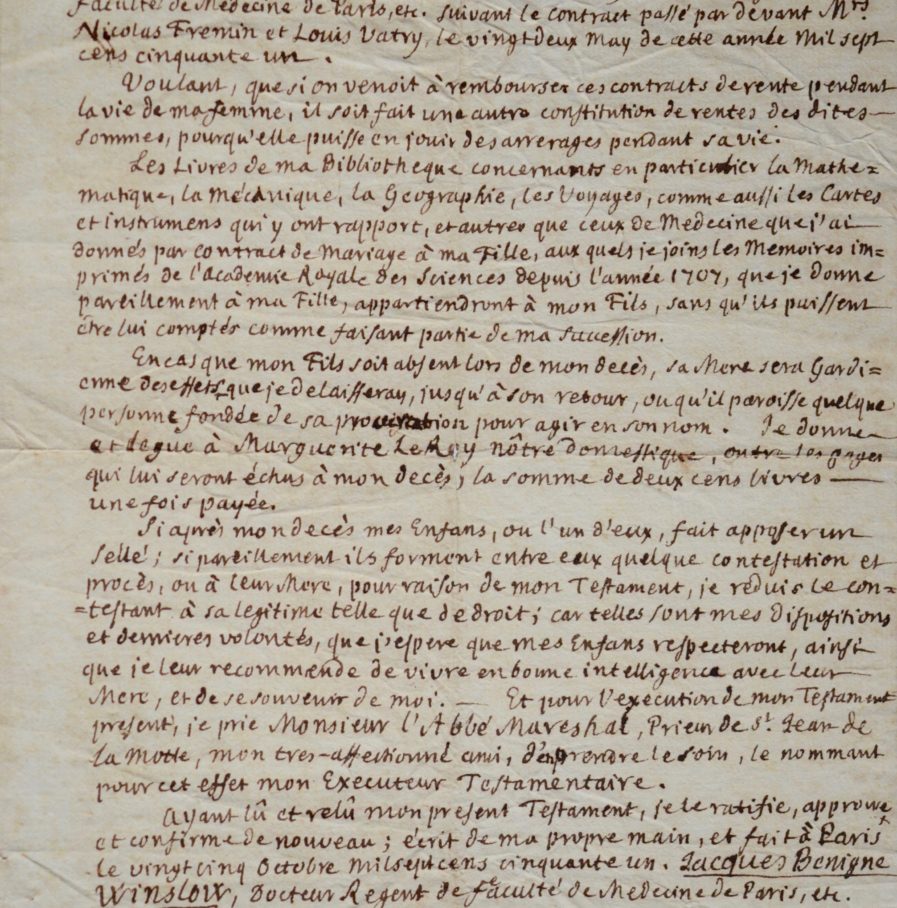 faculté de Médecine de Paris, etc. suivant le contract passé par devant Mrs
Nicolas Fremin et Louis Vatry, le vingtdeux may de cette année mil sept
cens cinquante un.
Voulant, que si on venoit à rembourser ces contracts de rente pendant
la vie de ma femme, il soit fait une autre constitution de rentes des dites
sommes, pourqu'elle puisse en jouir des arrerages pendant sa vie.
Les Livres de ma Bibliotheque concernants en particulier la Mathe=
matique, la Mécanique, la Geographie, les Voyages, comme aussi les Cartes
et instrumens qui y ont rapport, et autres que ceux de Medecine que j'ai
donnés par contract de Mariage à ma Fille, aux quels je joins les Memoires im=
primés de l'Academie Royale des Sciences depuis l'année 1707, que je donne
pareillement à ma Fille, appartiendront à mon Fils, sans qu'ils puissent
être lui comptés comme faisant partie de ma succession.
En cas que mon Fils soit absent lors de mon decès, sa Mere sera Gardi=
enne des effets que je delaisseray, jusqu'à son retour, ou qu'il paroisse quelque
personne fondée de sa procuration pour agir en son nom. Je donne
et legue à Marguerite LeRoy nôtre domestique, outre les gages
qui lui seront échus à mon decès, la somme de deux cens livres
une fois payée.
Si après mon decès mes Enfans, ou l'un d'eux, fait apposer un
sellé; si pareillement ils forment entre eux quelque contestation et
procès, ou à leur Mere, pour raison de mon Testament, je reduis le con=
=testant à sa legitime telle que de droit; car telles sont mes dispositions
et dernieres volontés, que j'espere que mes Enfans respecteront, ainsi
que je leur recommende de vivre en bonne intelligence avec leur
Mere, et de se souvenir de moi. — Et pour l'exécution de mon Testament
present, je prie Monsieur l'Abbé Mareshal, Prieur de St. Jean de
la Motte, mon tres-affectionné ami, d'en prendre le soin, le nommant
pour cet effet mon Executeur Testamentaire.
Ayant lû et relû mon present Testament, je le ratifie, approuve
et confirme de nouveau; écrit de ma propre main, et fait à Paris
le vingt cinq Octobre mil sept cens cinquante un. Jacques Benigne
Winslow, Docteur Regent de faculté de Medecine de Paris, etc.